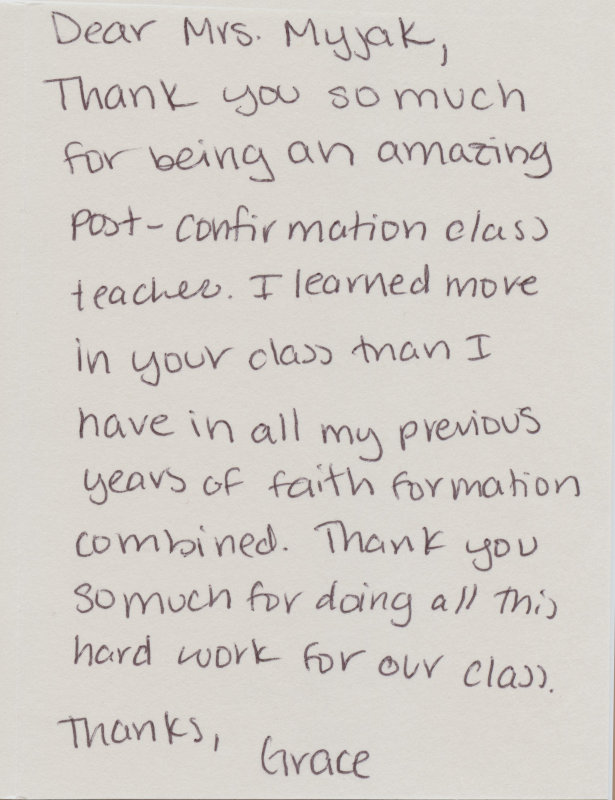 Dear Mrs. Myjak,
Thank you so much
for being an amazing
post-confirmation class
teacher. I learned more
in your class than I
have in all my previous
years of faith formation
combined. Thank you
so much for doing all this
hard work for our class.
Thanks, Grace